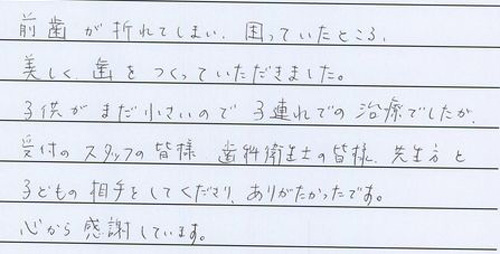 前歯が折れてしまい、困っていたところ、
美しく、歯をつくっていただきました。
子供がまだ小さいので子連れでの治療でしたが、
受付のスタッフの皆様 歯科衛生士の皆様、先生方と
子どもの相手をしてくださり、ありがたかったです。
心から感謝しています。